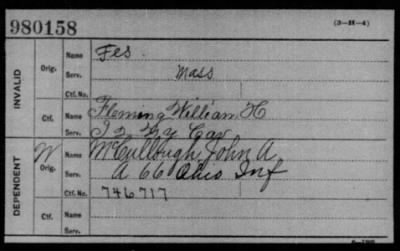 980158
(3-H-4)
INVALID
Orig.
Name Fes
Serv. Mass
Ctf. No.
Ctf.
Name Fleming William H
Serv. I 2 Ky Cav
DEPENDENT
W
Orig.
Name McCullough, John A
Serv. A 66 Ohio Inf
Ctf. No. 746717
Ctf.
Name
Serv.